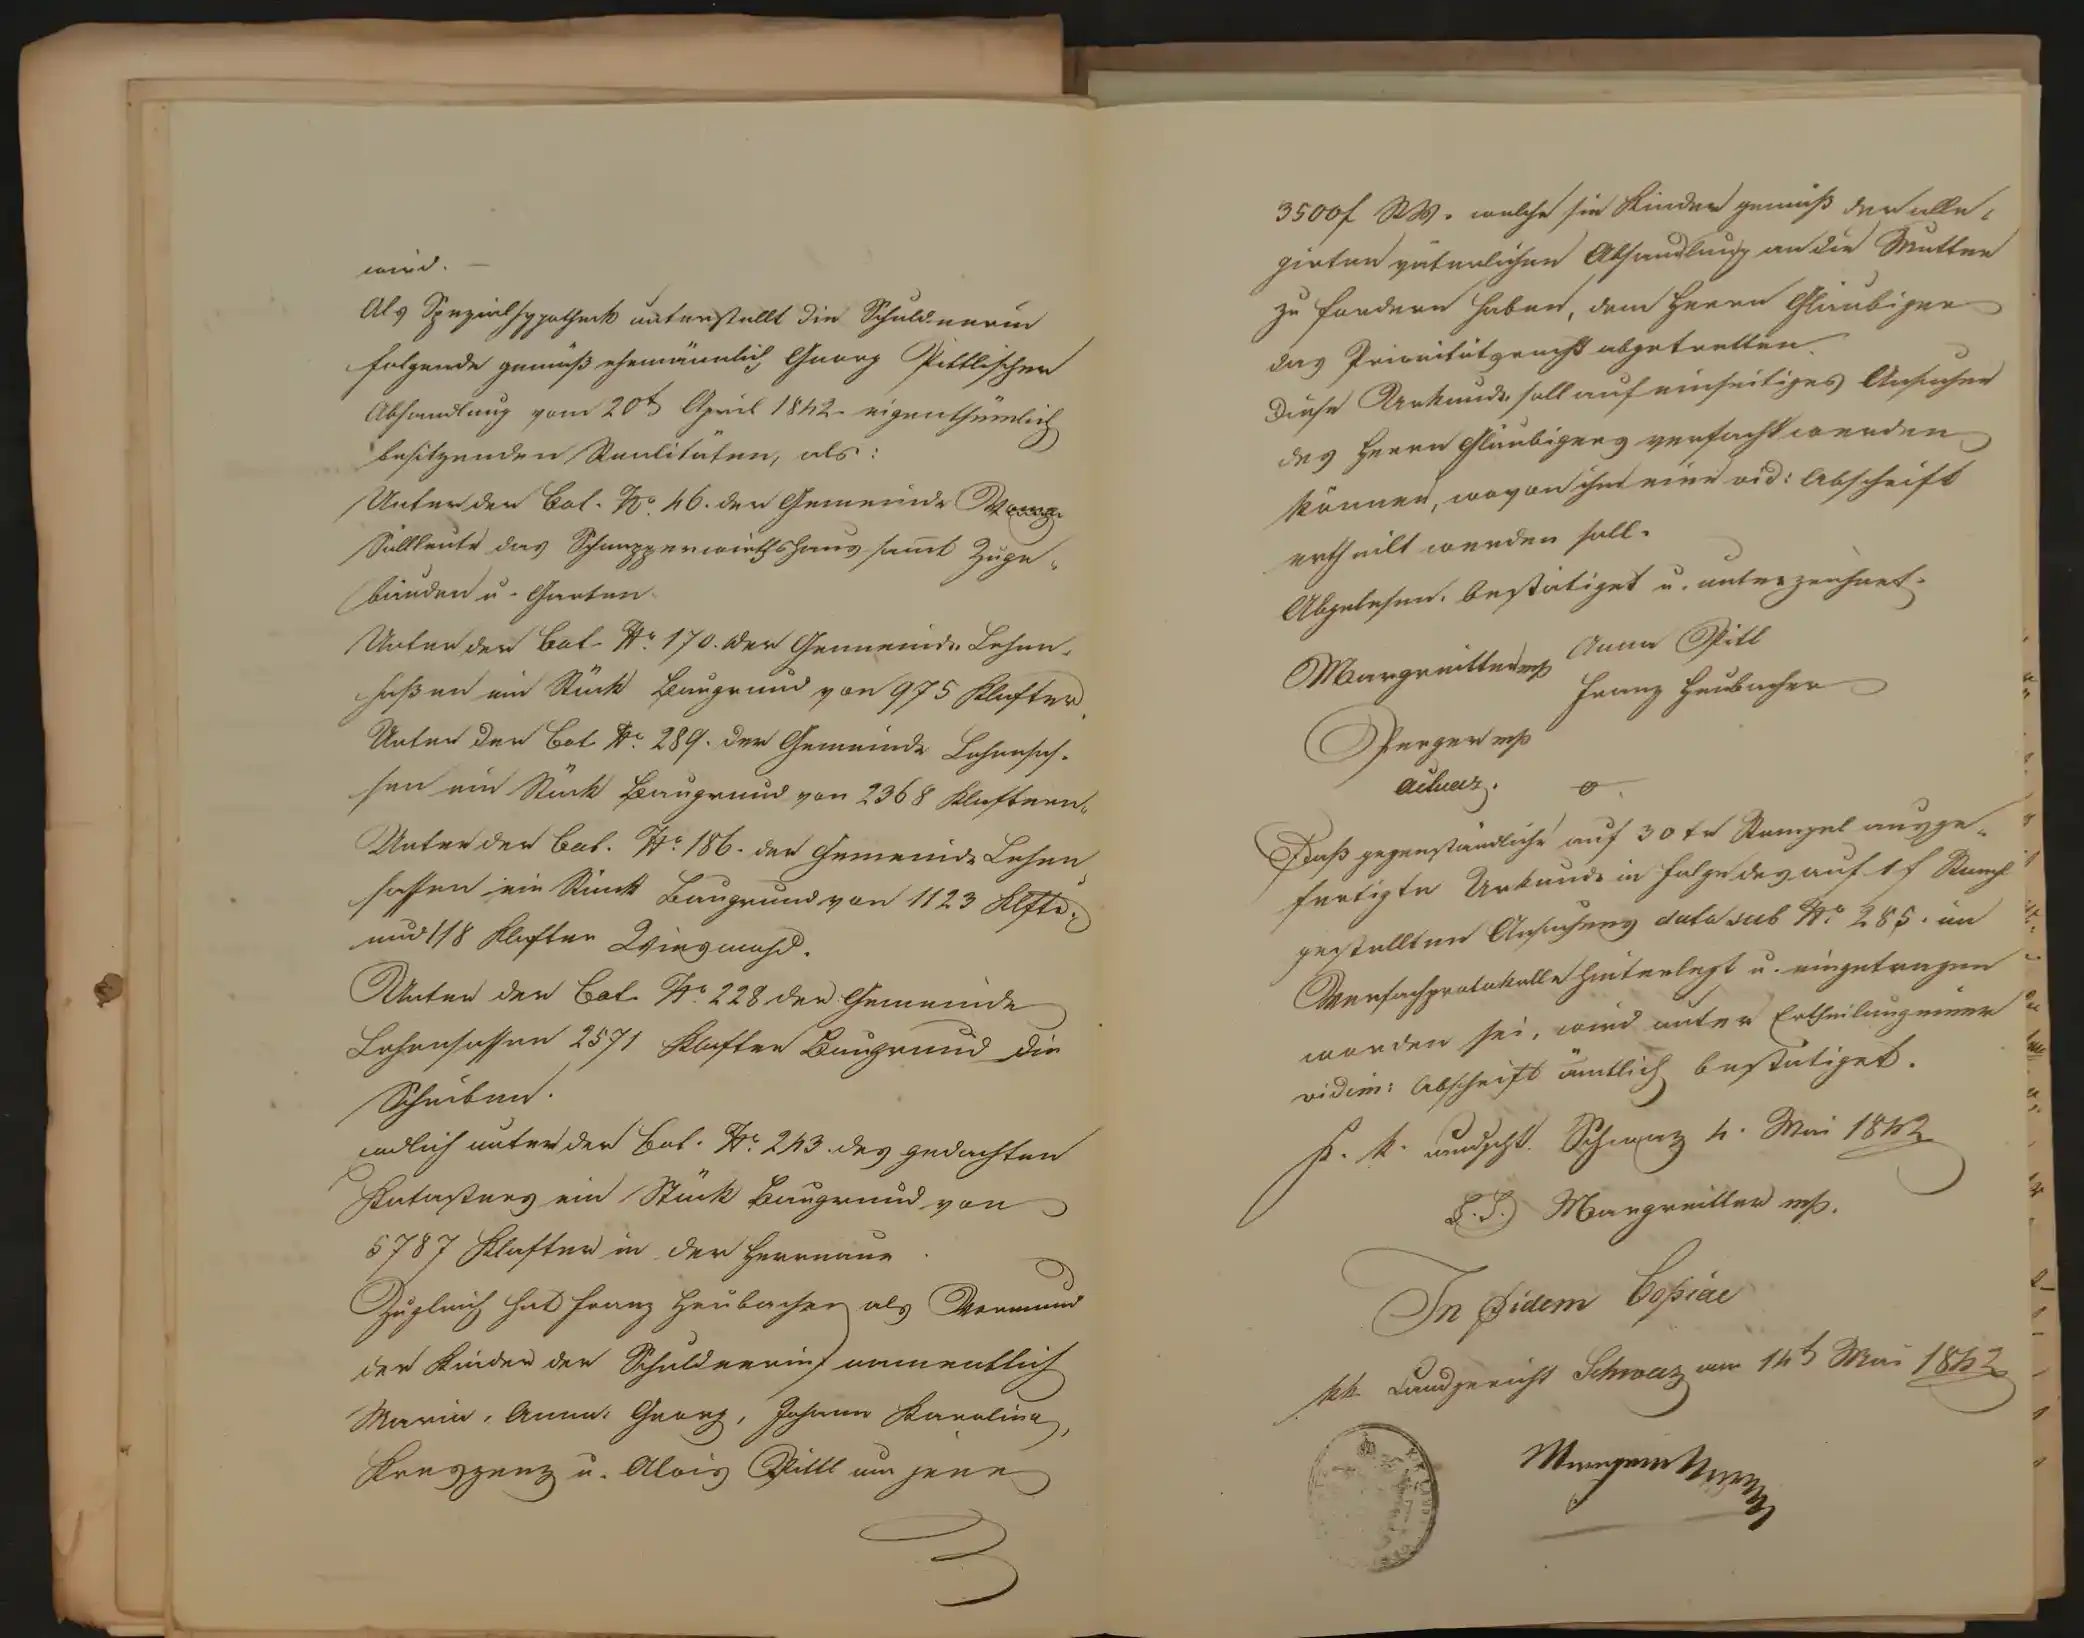 wird. —
Als Spezialhypotheck unterstellt die Schuldnerin
folgende gemäß ehemännlich Georg Pittlischer
Abhandlung vom 20t April 1842 eigenthümlich
besitzenden Realitäten, als:
Unter der Cat. No. 46. der Gemeinde
Söllleute das Schnapperwirthshaus samt Zuge„
bäuden u. Garten
Unter der Cat. No. 170. der Gemeinde Lehen„
saßen ein Stück Baugrund von 975 Klafter.
Unter der Cat. No. 289. der Gemeinde Lehensas„
sen ein Stück Baugrund von 2368 Klaftern.
Unter der Cat. No. 186. der Gemeinde Lehen„
sassen ein Stück Baugrund von 1123 Klftr.
und 118 Klafter Wiesmahd.
Unter der Cat. No. 228 der Gemeinde
Lehensassen 2571 Klafter Baugrund die
Scheiben.
endlich unter der Cat. No. 243 des gedachten
Katasters ein Stück Baugrund von
5787 Klafter in der Herrnaue
Zugleich hat Franz Heubacher als Vormund
der Kinder der Schuldnerin namentlich
Maria, Anna, Georg, Johann Karolina,
Kreszenz u. Alois Pittl um jene
3500f RW. welche sie Kinder gemäß der alle„
girten väterlichen Abhandlung an die Mutter
zu fordern haben, dem Herrn Gläubiger
das Prioritätsrecht abgetretten.
Diese Urkunde soll auf einseitiges Ansuchen
des Herrn Gläubigers verfacht werden
können, wovon ihm eine vid: Abschrift
ertheilt werden soll.
Abgelesen, bestätiget u. unterzeichnet.
Margreitter mp Anna Pitl
Franz Heubacher
Perger mp
Actuar.
Daß gegenständliche auf 30 kr Stempel ausge„
fertigte Urkunde in Folge des auf 1 f Stempl
gestellten Ansuchens dato sub No. 285. im
Verfachprotokolle hinterlegt u. eingetragen
worden sei, wird unter Ertheilung einer
vidim: Abschrift ämtlich bestätiget.
K. K. Landgcht. Schwaz 4. Mai 1842
(L.S.) Margreitter mp.
In Fidem Copiae
kk Landgericht Schwaz am 14t Mai 1842
Margreitter